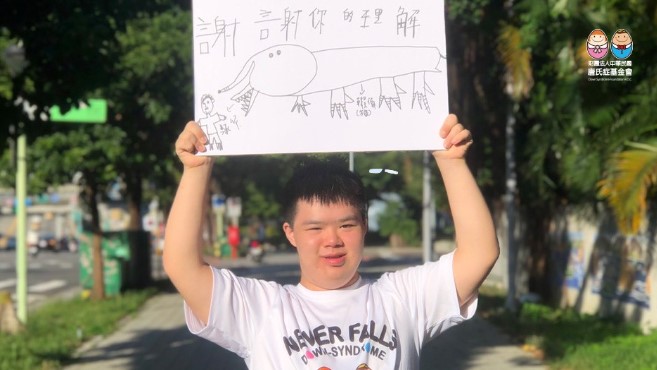 謝謝你的理解
財團法人中華民國
唐氏症基金會
NEVER FALLS
DOWN-SYNDROME